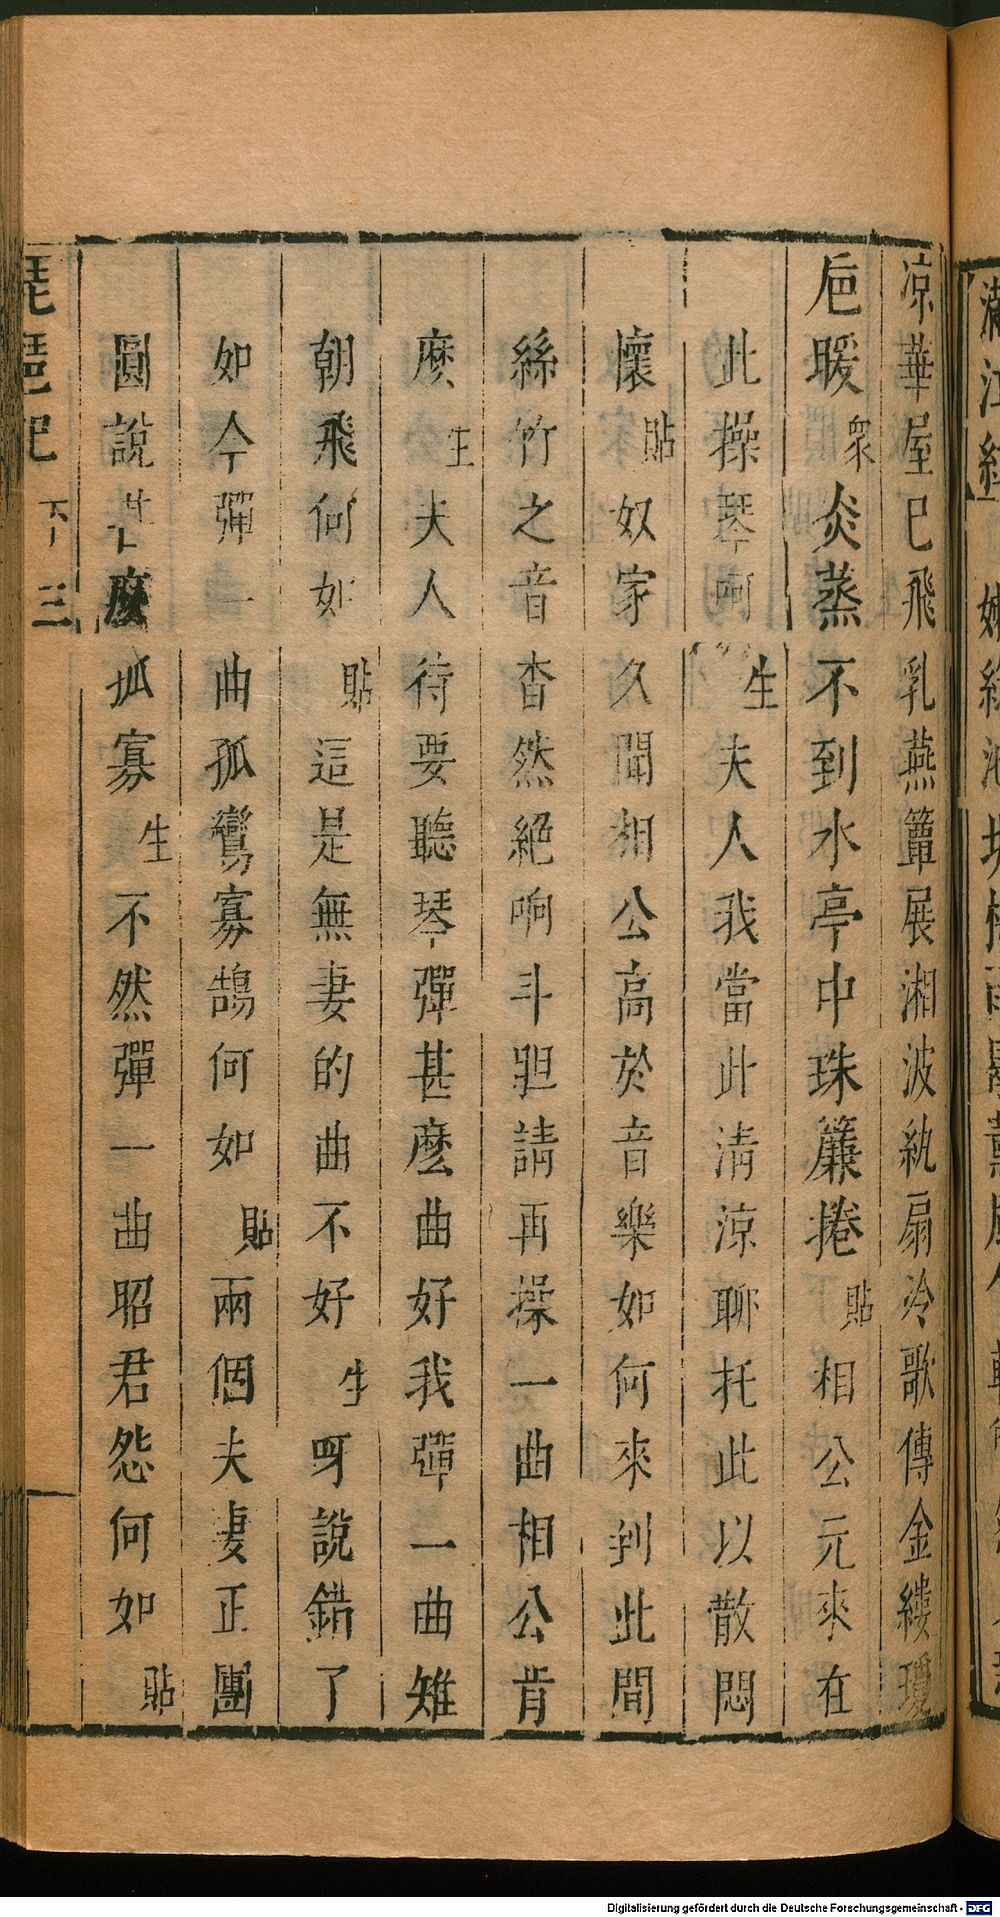 凉華屋巳飛乳燕簟展湘波紈扇冷歌傳金縷瓊
巵暖衆炎蒸不到水亭中珠簾捲貼相公元來在
此操琴呵生夫人我當此淸涼聊托此以散悶
懷貼奴家久聞相公高於音樂如何來到此間
絲竹之音杳然絕响斗胆請再操一曲相公肯
麽生夫人待要聽琴彈甚麽曲好我彈一曲雉
朝飛何如貼這是無妻的曲不好生呀說錯了
如今彈一曲孤鸞寡鵠何如貼兩個夫妻正團
圓說甚麽孤寡生不然彈一曲昭君怨何如貼
琵琶記 下 三
Digitalisierung gefördert durch die Deutsche Forschungsgemeinschaft - DFG